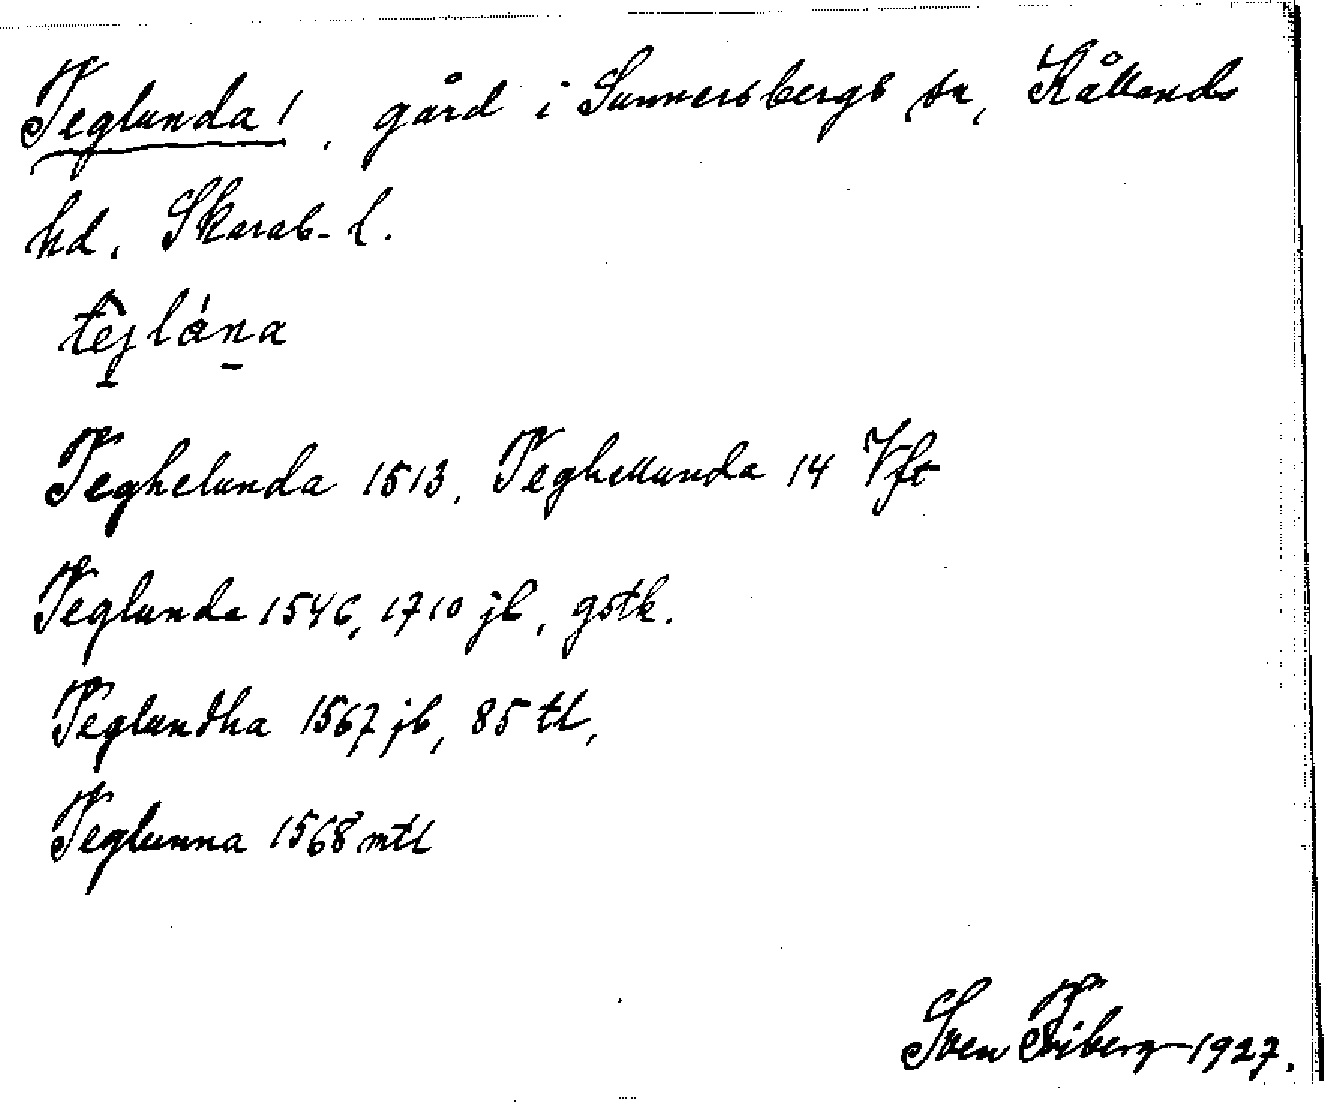 Teglunda!, gård i Sunnersbergs sn, Kållands
hd. Skarab. l.
tejlána
Teghelunda 1513, Teghellunda 14 Vft
Teglunda 1546, 1710 jb, gstk.
Teglundha 1567 jb, 85 tl,
Teglunna 1568 mtl
Sven Friberg 1927.